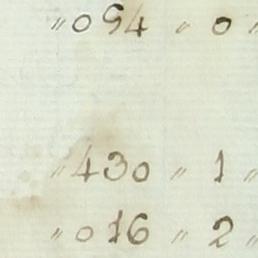 " 054 " 0 "
" 430 " 1 "
" 016 " 2 "